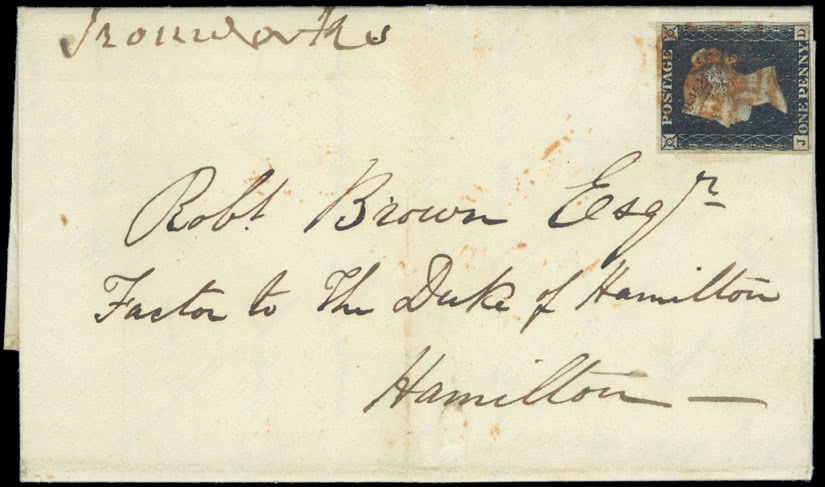 Ironworks
POSTAGE
ONE PENNY
J D
Robt Brown Esqr
Factor to The Duke of Hamilton
Hamilton —